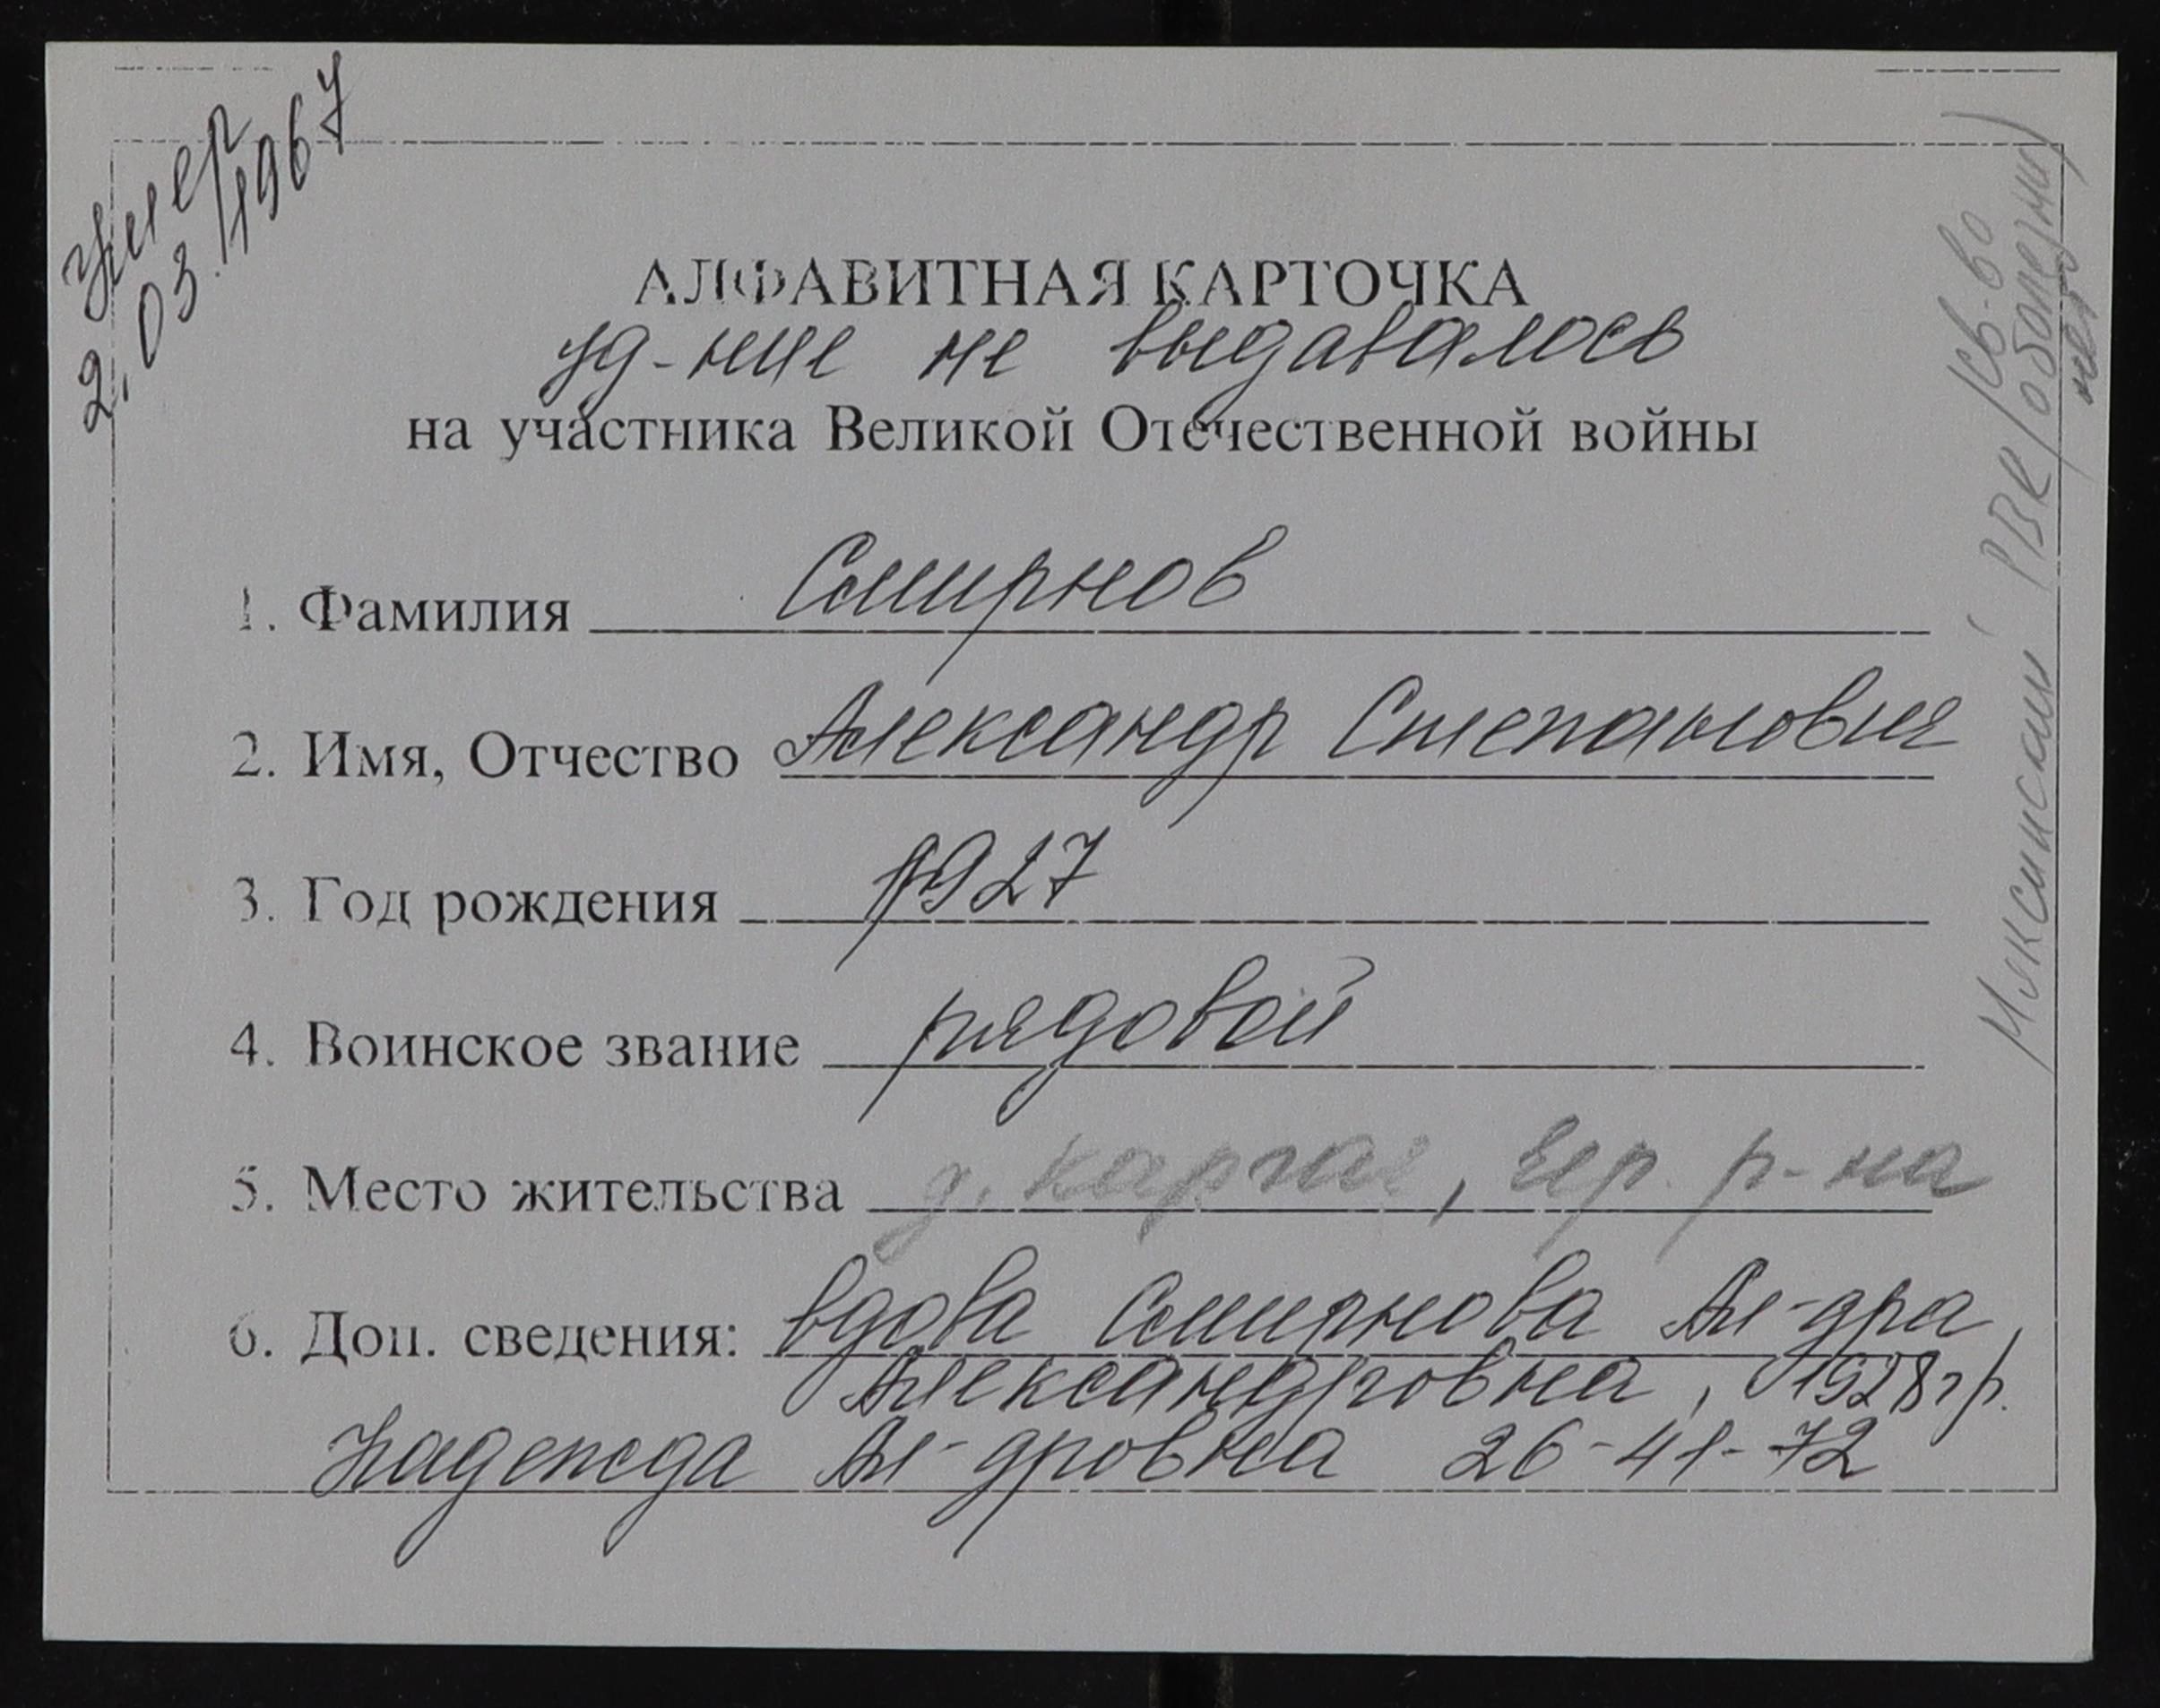 Умер
2.03.1967
АЛФАВИТНАЯ КАРТОЧКА
уд-ние не выдавалось
на участника Великой Отечественной войны
1. Фамилия Смирнов
2. Имя, Отчество Александр Степанович
3. Год рождения 1927
4. Воинское звание рядовой
5. Место жительства д. Каргач, Чер. р-на
6. Доп. сведения: вдова Смирнова Ал-дра
Александровна, 1928 гр.
Надежда Ал-дровна 26-41-72
Мяксинский РВК (св-во
о болезни)
нет